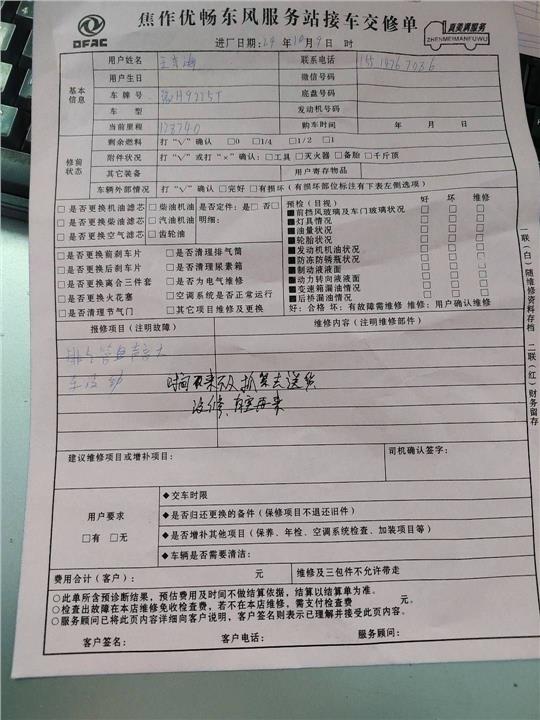 DFAC
焦作优畅东风服务站接车交修单
真美满服务
ZHENMEIMANFUWU
进厂日期:24 年10月9日 时
基本信息
用户姓名
联系电话
用户生日
微信号码
车 牌 号
底盘号码
车 型
发动机号码
当前里程 123740
购车时间 年 月 日
修前状态
剩余燃料 打“√”确认 □0 □1/4 □1/2 □1
附件状况 打“√”或打“×”确认:□工具 □灭火器 □备胎 □千斤顶
其它装备
用户寄存物品
车辆外部情况 打“√”确认 □完好 □有损坏(有损坏部位标注有下表左侧选项)
□是否更换机油滤芯 □柴油机油 是否定件: □是 □否
□是否更换柴油滤芯 □汽油机油 明细:
□是否更换空气滤芯 □齿轮油
□是否更换前刹车片 □是否清理排气筒
□是否更换后刹车片 □是否清理尿素箱
□是否更换离合三件套 □是否为电气维修
□是否更换火花塞 □空调系统是否正常运行
□是否清理节气门 □其它项目维修及更换
预检(目视) 好 坏 维修
■前挡风玻璃及车门玻璃状况 □ □ □
■灯具情况 □ □ □
■油量状况 □ □ □
■轮胎状况 □ □ □
■发动机机油状况 □ □ □
■防冻防锈瓶状况 □ □ □
■制动液液面 □ □ □
■动力转向液液面 □ □ □
■变速箱漏油情况 □ □ □
■后桥漏油情况 □ □ □
好:合格 坏:有故障需维修 维修:用户确认维修
报修项目(注明故障)
维修内容(注明维修部件)
排气管声音大
时间来不及 抓紧去送货
没修,有空再来
建议维修项目或增补项目:
司机确认签字:
用户要求
□有 □无
◆交车时限
◆是否归还更换的备件(保修项目不退还旧件)
◆是否增补其他项目(保养、年检、空调系统检查、加装项目等)
◆车辆是否需要清洁:
费用合计(客户): 元
维修及三包件不允许带走
○此单所含预诊断结果,预估费用及时间不做结算依据,结算以结算单为准。
○检查出故障在本店维修免收检查费,若不在本店维修,需支付检查费 元。
○服务顾问已将此页内容详细向客户说明,客户签名则表示已理解并接受此页内容。
客户签名: 客户电话: 服务顾问:
一联(白)随维修资料存档 二联(红)财务留存